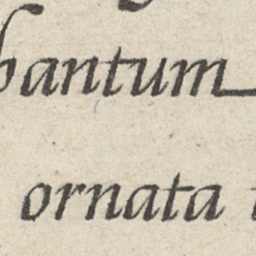 bantum
ornata